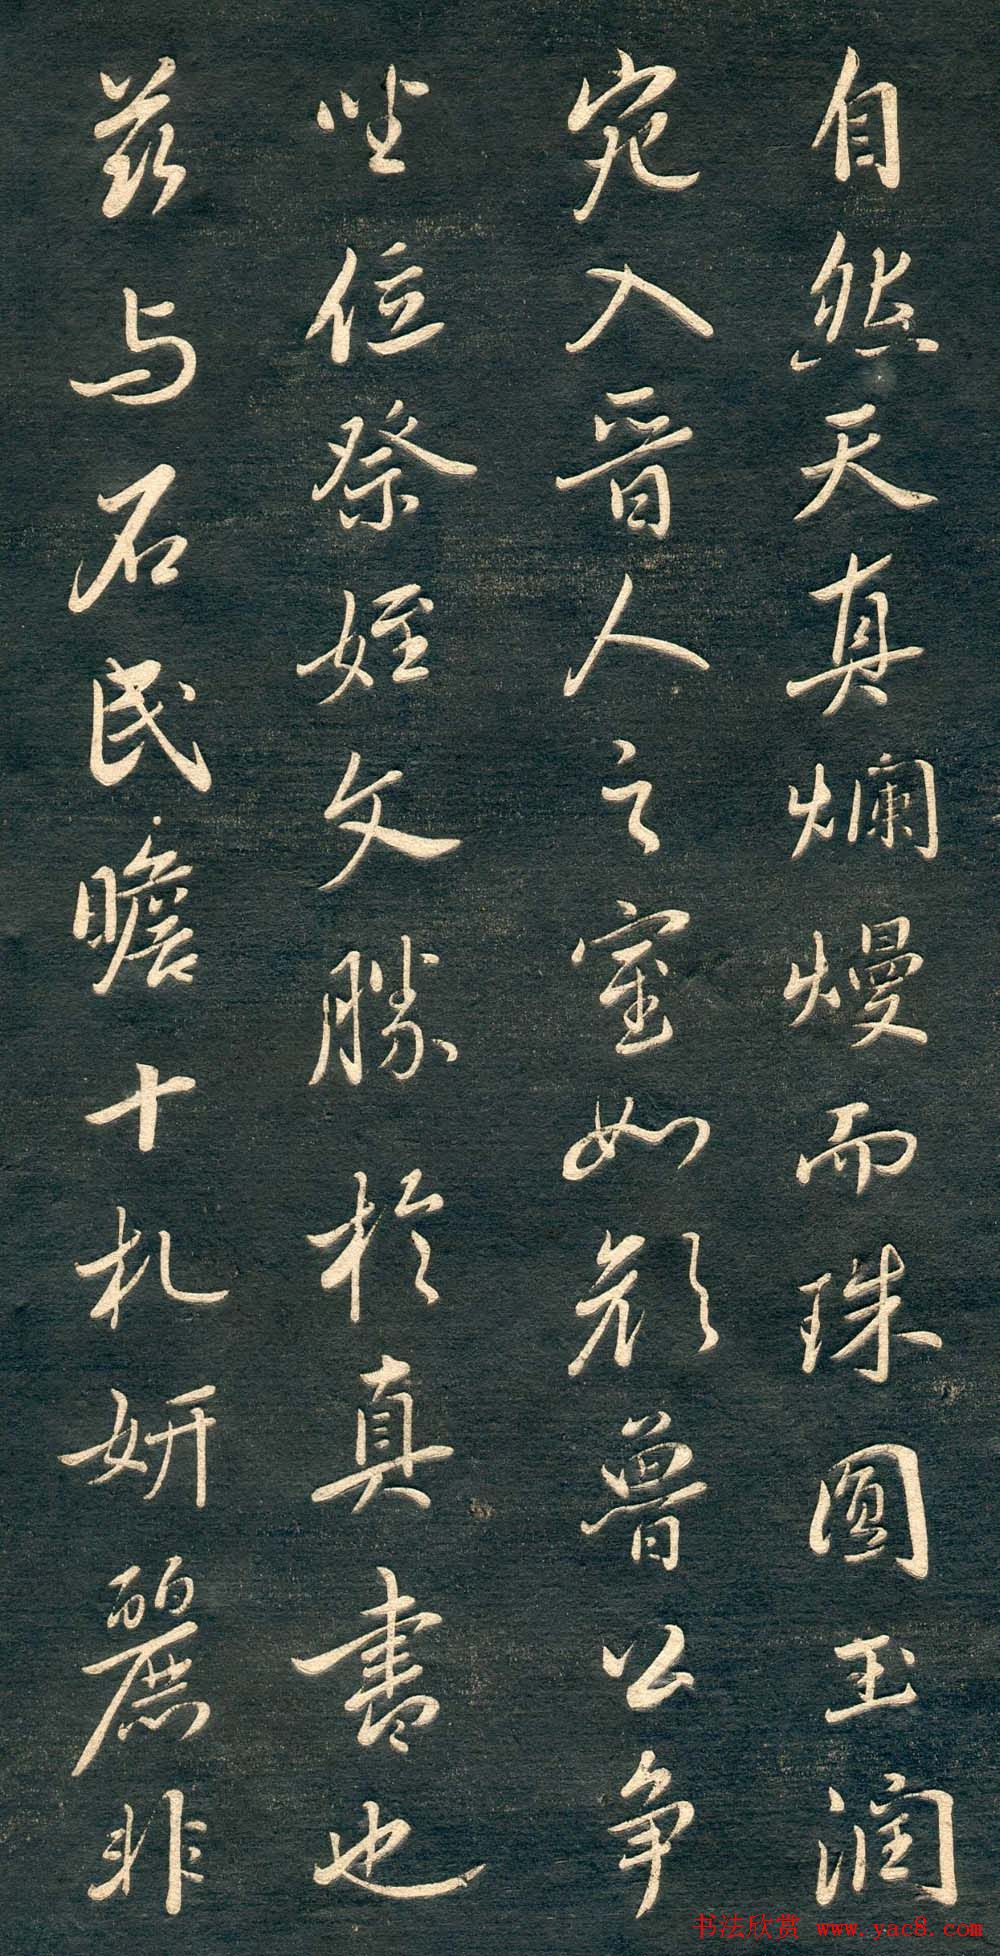 自然天真爛熳而珠圓玉潤
宛入晉人之室如顔魯公争
坐位祭姪文勝於真書也
兹与石民瞻十札妍麗非
书法欣赏 www.yac8.com